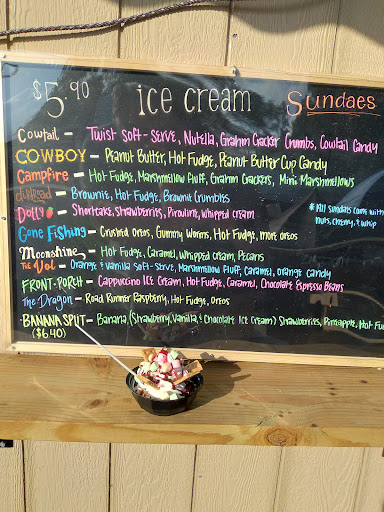 $5.90 ice cream Sundaes
Cowtail - Twist Soft-Serve, Nutella, Graham Cracker Crumbs, Cowtail Candy
COWBOY - Peanut Butter, Hot Fudge, Peanut Butter Cup Candy
Campfire - Hot Fudge, Marshmellow Fluff, Graham Crackers, Mini Marshmellows
- Brownie, Hot Fudge, Brownie Crumbles
Dolly - Shortcake, Strawberries, Piroulini, whipped cream
* All sundaes come with
nuts, cherry, & whip
Gone Fishing - Crushed Oreos, Gummy Worms, Hot Fudge, more oreos
Moonshine - Hot Fudge, Caramel, Whipped cream, Pecans
The Vol - Orange & Vanilla Soft-Serve, Marshmellow Fluff, Caramel, Orange candy
FRONT-PORCH - Cappuccino Ice Cream, Hot Fudge, Caramel, Chocolate Espresso Beans
The Dragon - Road Runner Raspberry, Hot Fudge, Oreos
BANANA SPLIT - Banana, (Strawberry, Vanilla, & Chocolate Ice Cream) Strawberries, Pineapple, Hot Fu
($6.40)